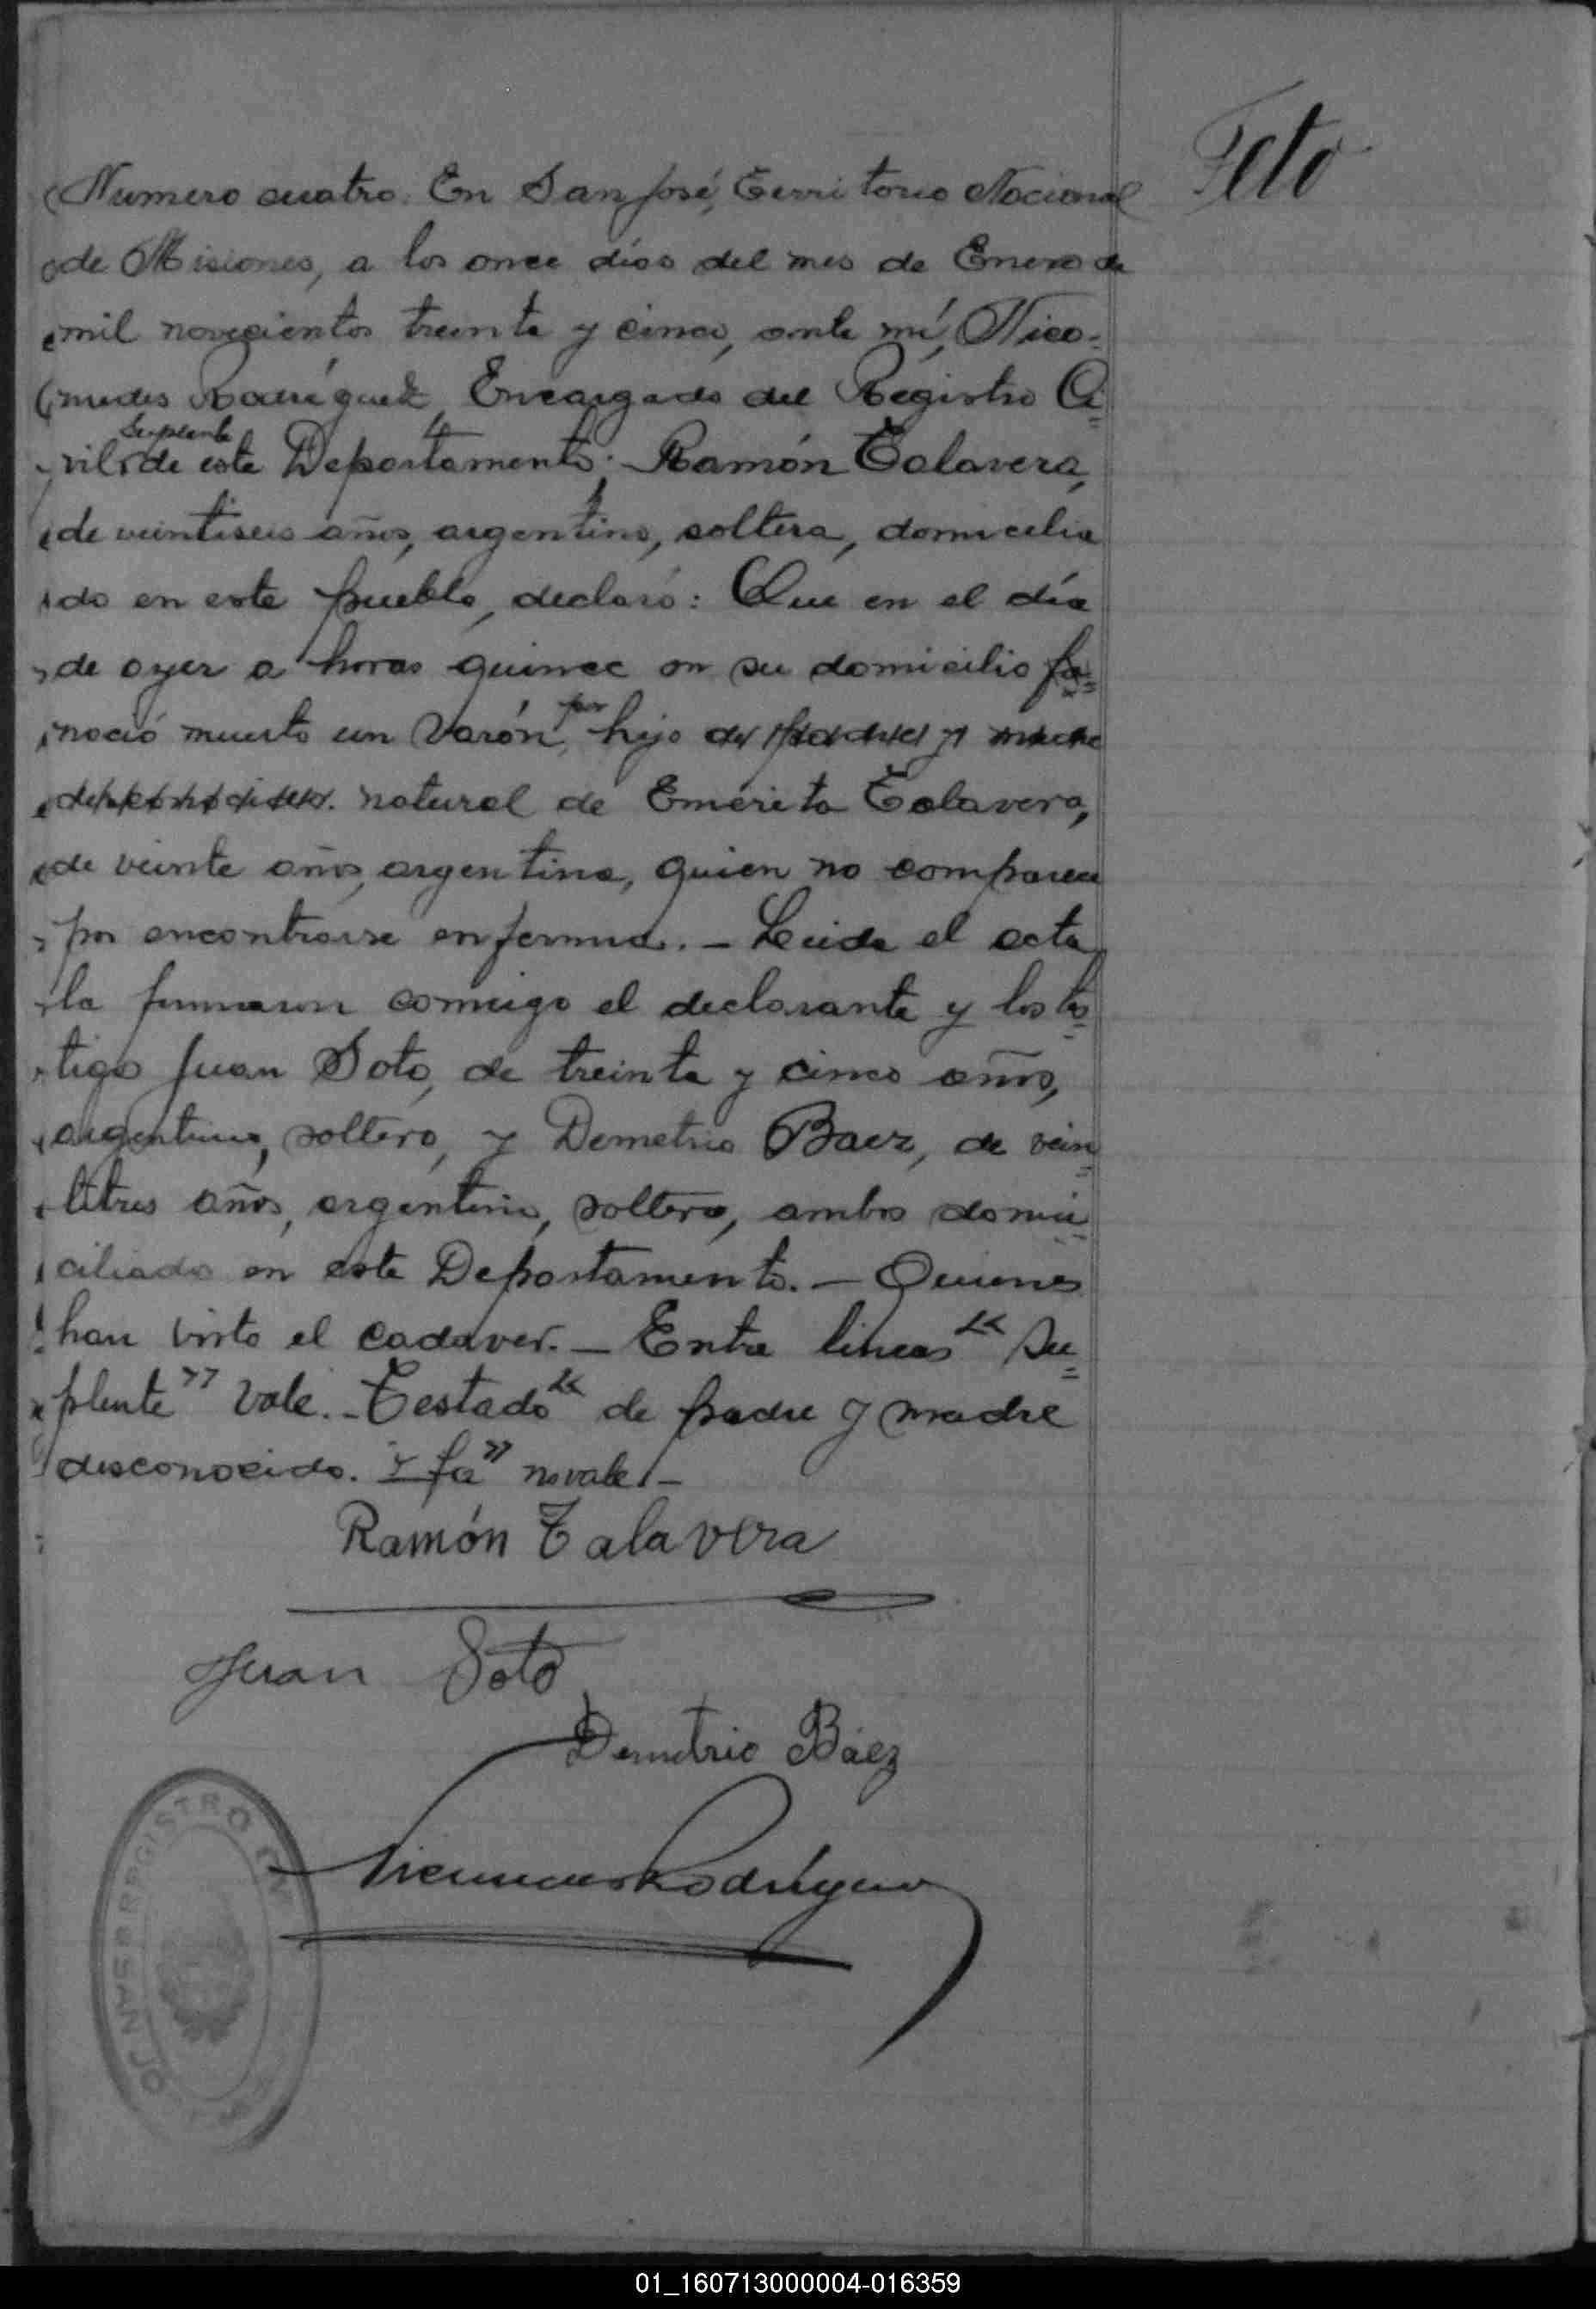 Feto
Numero cuatro: En San José, Territorio Nacional
de Misiones, a los once días del mes de Enero de
mil novecientos treinta y cinco, ante mí, Nico=
medes Rodríguez, Encargado del Registro Ci=
Suplente
vil de este Departamento; Ramón Talavera,
de veintiseis años, argentino, soltero, domicilia
do en este pueblo, declaró: Que en el día
de ayer a horas quince en su domicilio fa=
por
nació muerto un varón, hijo de padre y madre
desconocidos. natural de Emérita Talavera,
de veinte años, argentina, quien no comparece
por encontrarse enferma. - Leida el acta
la firmaron conmigo el declarante y los tes=
tigo Juan Soto, de treinta y cinco años,
argentino, soltero, y Demetrio Baez, de vein=
titres años, argentino, soltero, ambos domi=
ciliado en este Departamento. - Quienes
han visto el cadaver. - Entre lineas "Su=
plente" Vale. - Testado "de padre y madre
desconocido. y fa" no vale. -
Ramón Talavera
Juan Soto
Demetrio Báez
Nicomedes Rodríguez
REGISTRO CIVIL
SAN JO
01_160713000004-016359